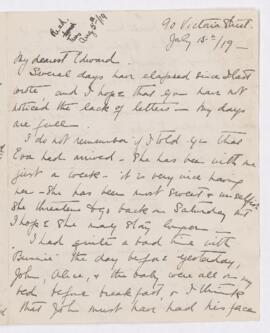 90 Victoria Street
July 15th/19 —
Aug 5th/19
My dearest Edward.
Several days have elapsed since I last
wrote and I hope that you have not
noticed the lack of letters — My days
are full.
I do not remember if I told you that
Eva had arrived — She has been with me
just a week — it is very nice having
her — She has been most sweet & unselfish
She threatens to go back on Saturday but
I hope She may stay longer —
I had quite a bad time with
Bunnie the day before yesterday,
John, Alice, & the baby were all in my
bed before breakfast, & I think
that John must have had his face